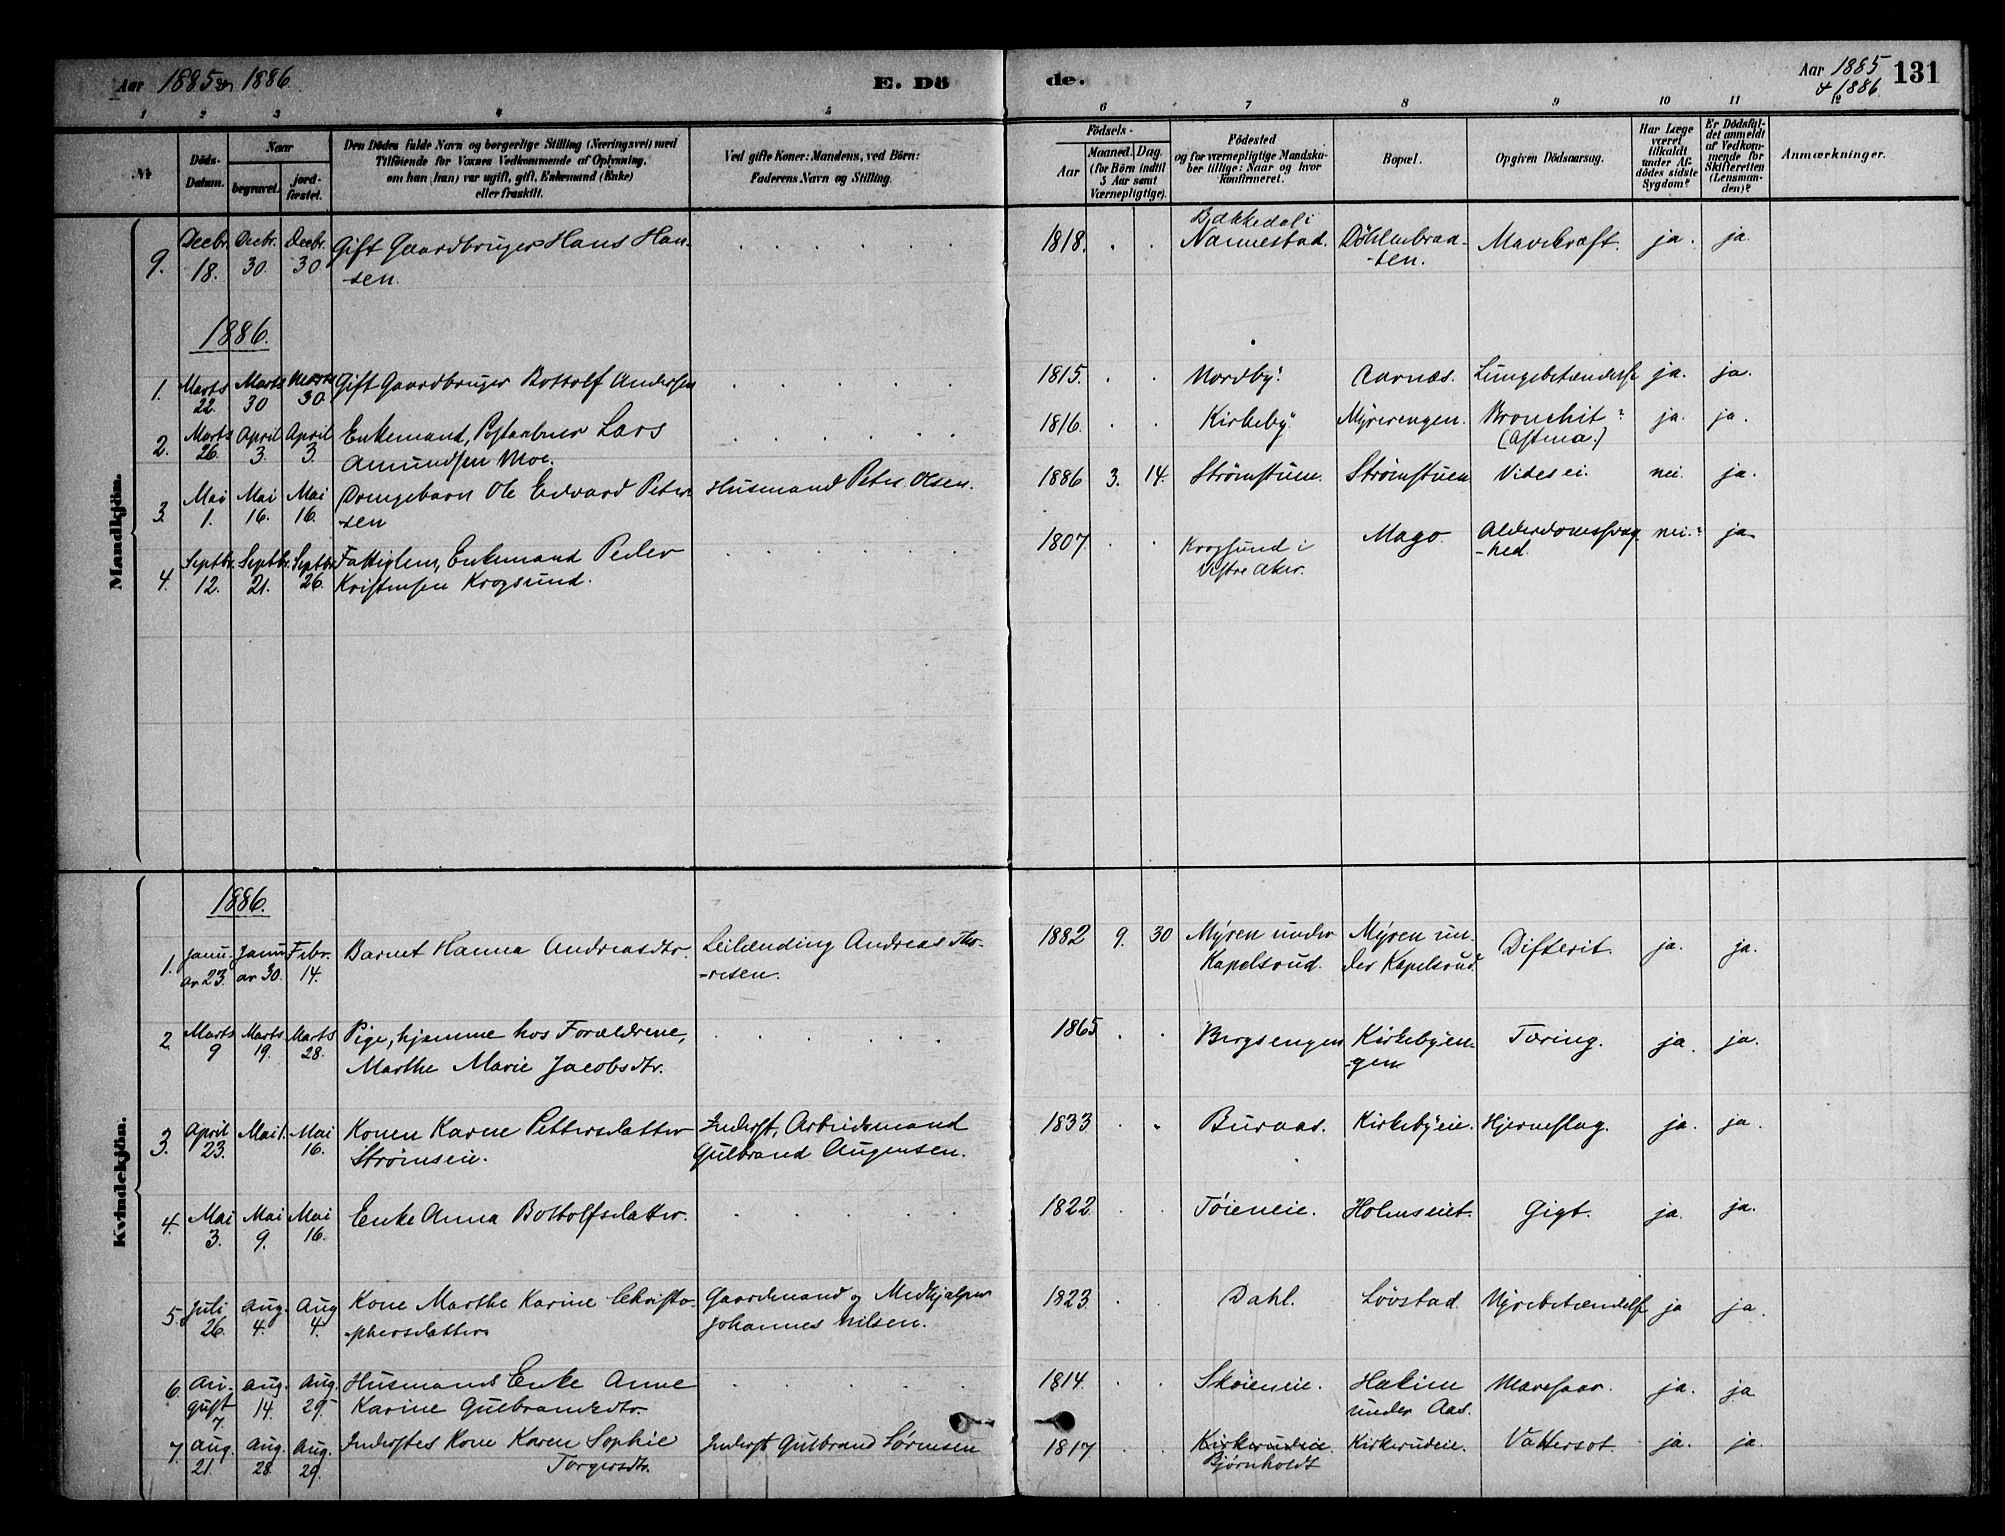 Aar 1885 og 1886
E. Döde.
Aar 1885
& 1886
131
1 2 3 4 5 6 7 8 9 10 11 12
№
Döds-Datum.
Naar
begravet.
jord-fæstet.
Den Dödes fulde Navn og borgerlige Stilling (Næringsvei) med
Tilföiende for Voxnes Vedkommende af Oplysning,
om han (hun) var ugift, gift, Enkemand (Enke)
eller fraskilt.
Ved gifte Koner: Mandens, ved Börn:
Faderens Navn og Stilling.
Födsels-
Aar
Maaned. Dag.
(for Börn indtil
5 Aar samt
Værnepligtige).
Födested
og for værnepligtige Mandska-
ber tillige: Naar og hvor
konfirmeret.
Bopæl.
Opgiven Dödsaarsag.
Har Læge
været
tilkaldt
under Af-
dödes sidste
Sygdom?
Er Dödsfal-
det anmeldt
af Vedkom-
mende for
Skifteretten
(Lensman-
den)?
Anmærkninger.
Mandkjön.
9. Decbr. 18. Decbr. 30. Decbr. 30 Gift Gaardbruger Hans Han-
sen.
1818. Bakkedal i
Nannestad. Döhlenbraa-
ten. Mavekræft. ja. ja.
1886.
1. Marts 22. Marts 30 Marts 30 Gift Gaardbruger Bottolf Andersen 1815. Nordby. Aarnæs. Lungebetændelse ja. ja.
2. Marts 26. April 3. April 3. Enkemand, Postaabner Lars
Amundsen Moe. 1816. Kirkeby. Myrerengen. Bronchit?
(Astma.) ja. ja.
3. Mai 1. Mai 16. Mai 16. Drengebarn Ole Edvard Peter-
sen Husmand Peter Olsen. 1886 3. 14. Strømstuen. Strømstuen Vides ei. nei. ja.
4. Septbr. 12. Septbr. 21. Septbr. 26. Fattiglem, Enkemand Peder
Kristensen Krogsund. 1807. Krogsund i
Vestre Aker. Mago. Alderdomssvag-
hed. nei.? ja
Kvindekjön.
1886.
1. Janu-
ar 23. Janu-
ar 30. Febr. 14. Barnet Hanna Andreasdtr. Leilænding Andreas Tho-
resen. 1882 9. 30 Myren under
Kapelsrud. Myren un-
der Kapelsrud. Difterit. ja. ja.
2. Marts 9 Marts 19. Marts 28. Pige, hjemme hos Forældrene,
Marthe Marie Jacobsdtr. 1865 Bergsengen Kirkebyen-
gen Tæring. ja. ja.
3. April 23. Mai 1. Mai 16. Konen Karen Pettersdatter
Strømseie. Inderst, Arbeidsmand
Gulbrand Augensen. 1833 Buraas. Kirkebyeie. Hjerneslag. ja. ja.
4. Mai 3. Mai 9. Mai 16. Enke Anna Bottolfsdatter. 1822. Tøieneie. Holmseiet. Gigt. ja. ja.
5. Juli 26. Aug. 4. Aug 4. Kone Marthe Karine Christo-
phersdatter Gaardmand og Medhjælper
Johannes Nilsen. 1823. Dahl. Løvstad. Nyrebetændelse ja ja.
6. Au-
gust 7. Aug. 14. Aug. 29. Husmands Enke Anne
Karine Gulbrandsdtr. 1814. Skøieneie. Hakim
under Aas. Mavesaar. ja. ja
7. Aug. 21. Aug. 28. Aug. 29. Inderstes Kone Karen Sophie
Torgersdtr. Inderst Gulbrand Sørensen 1817 Kirkerudeie
Bjørnholdt Kirkerudeie. Vattersot. ja. ja.